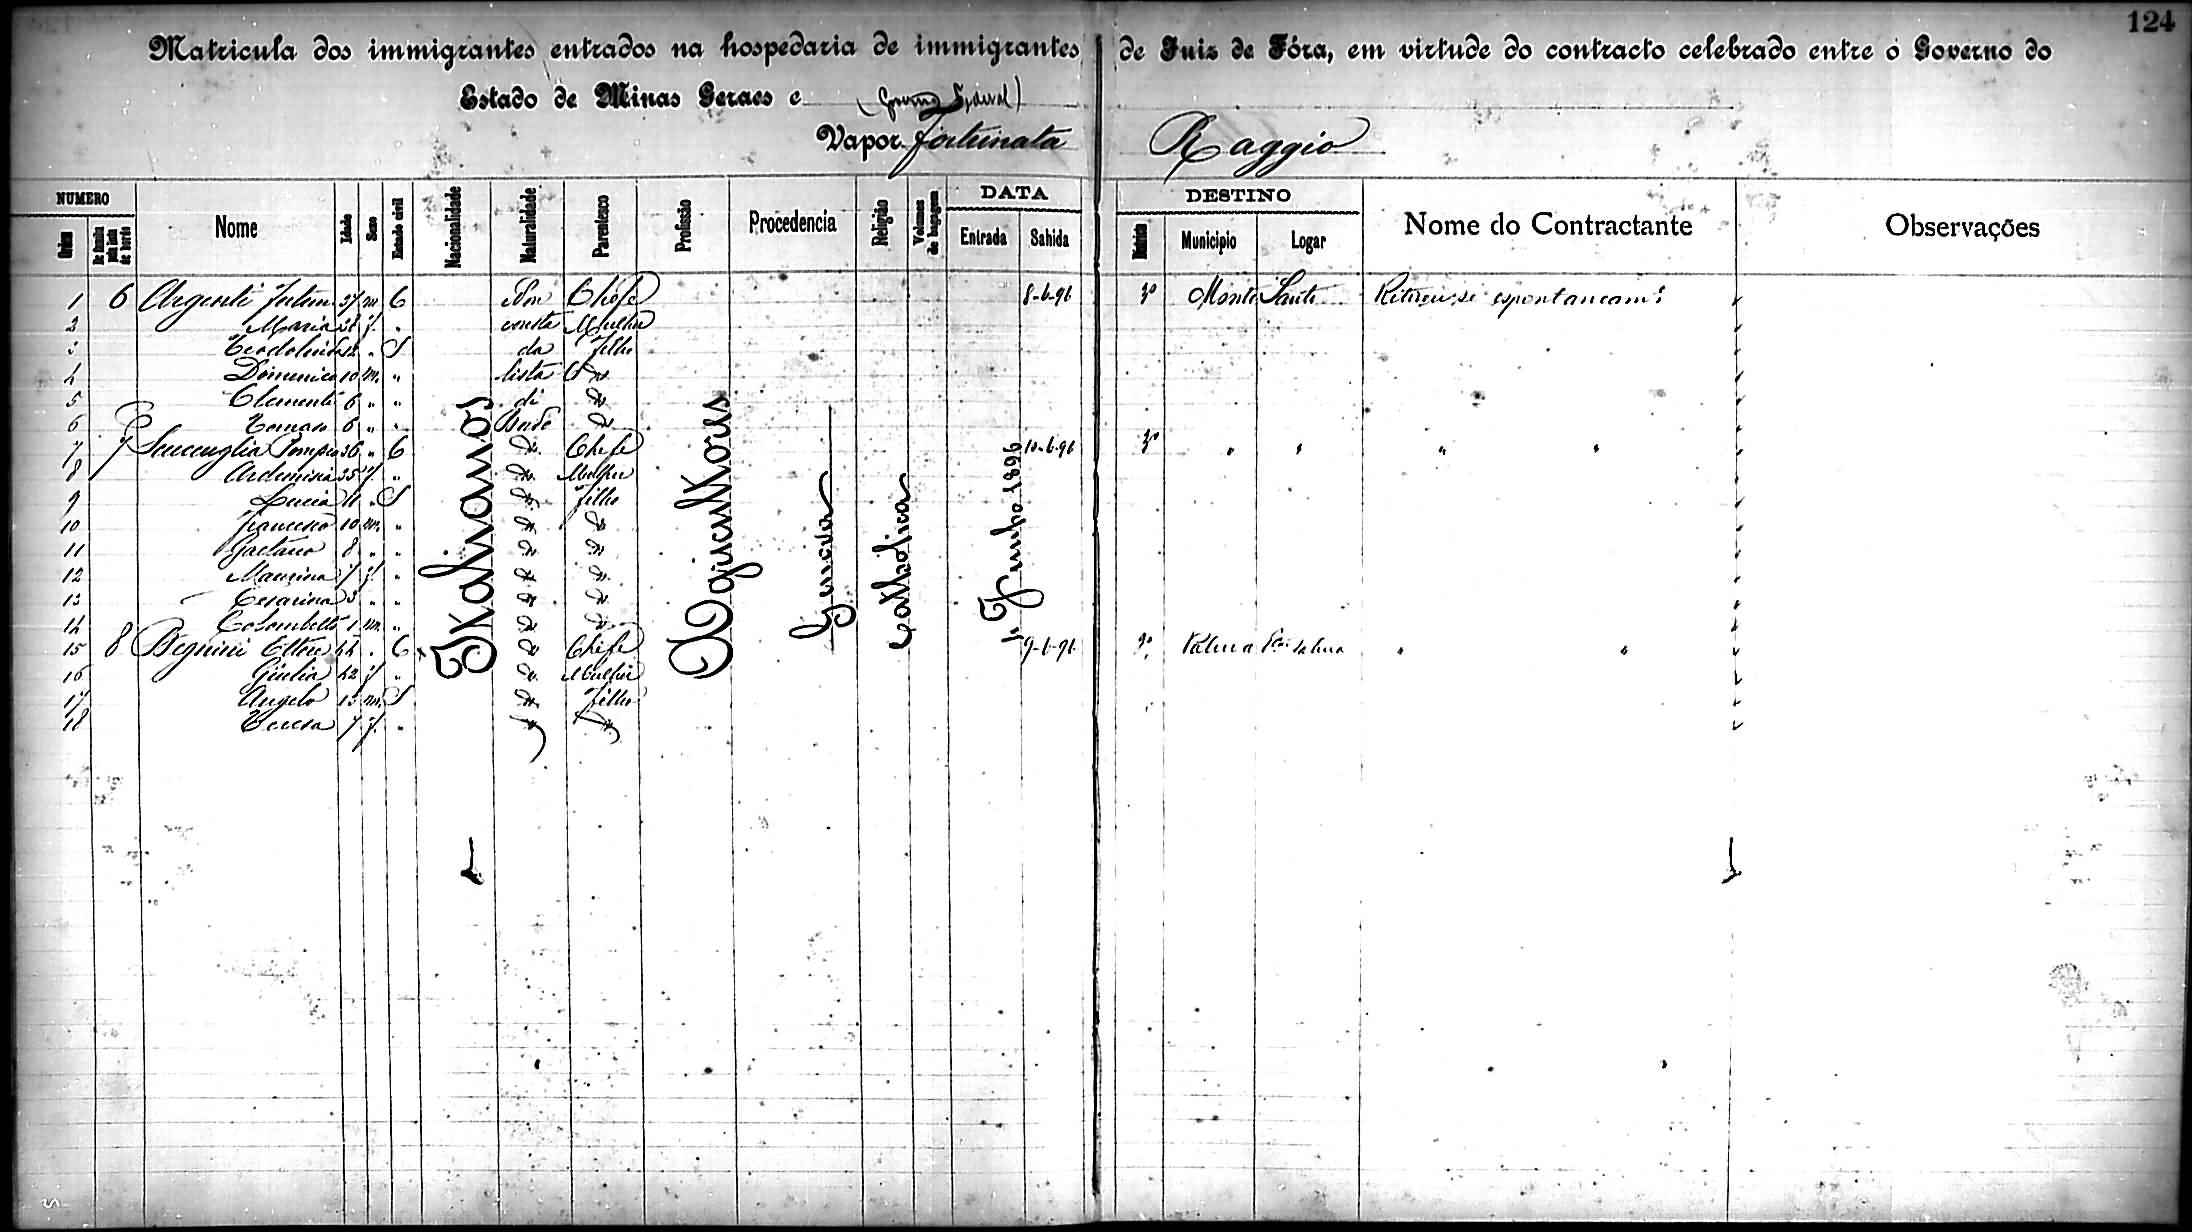 124
Matricula dos immigrantes entrados na hospedaria de immigrantes de Juiz de Fóra, em virtude do contracto celebrado entre o Governo do
Estado de Minas Geraes e
Vapor Fortunata Raggio
NUMERO
Ordem
Nome
Idade
Sexo
Estado civil
Nacionalidade
Naturalidade
Parentesco
Profissão
Procedencia
Religião
Volumes de bagagem
DATA
Entrada
Sahida
DESTINO
Districto
Municipio
Logar
Nome do Contractante
Observações
1 6 Argenti 37 m C Non Chefe 8-6-96 3º Monte Santo Retirou-se espontaneam.e
2 Maria 38 f. " consta Mulher
3 12 " S da filho
4 Domenico 10 m. " lista
5 Clemente 6 " " di
6 6 " " Bordo
7 7 Pompeo 36 " C Do Chefe 10-6-96 3º " " " "
8 35 f. " Do Mulher
9 Lucia 11 " S Do filho
10 Francesco 10 m. " Do Do
11 Gaetano 8 " " Do Do
12 7 f. " Do Do
13 Cesarina 3 " " Do Do
14 1 m. " Do Do
15 8 Begnini Ettore 44 " C Do Chefe 9-6-96 Palma " "
16 Giulia 42 f " Do Mulher
17 Angelo 15 m. S Do filho
18 Teresa 7 f. " Do Do
Italianos
Agricultores
Genova
Catholica
1º Junho 1896